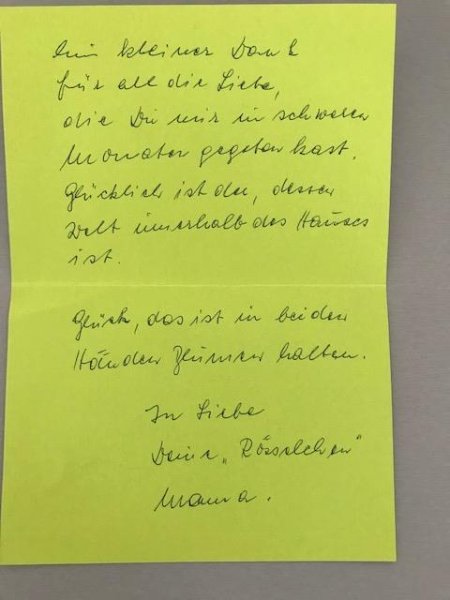 Ein kleiner Dank
für all die Liebe,
die Du mir in schweren
Monaten gegeben hast.
Glücklich ist der, dessen
Welt innerhalb des Hauses
ist.
Glück, das ist in beiden
Händen Blumen halten.
In Liebe
Deine „Rösselchen"
Mama.